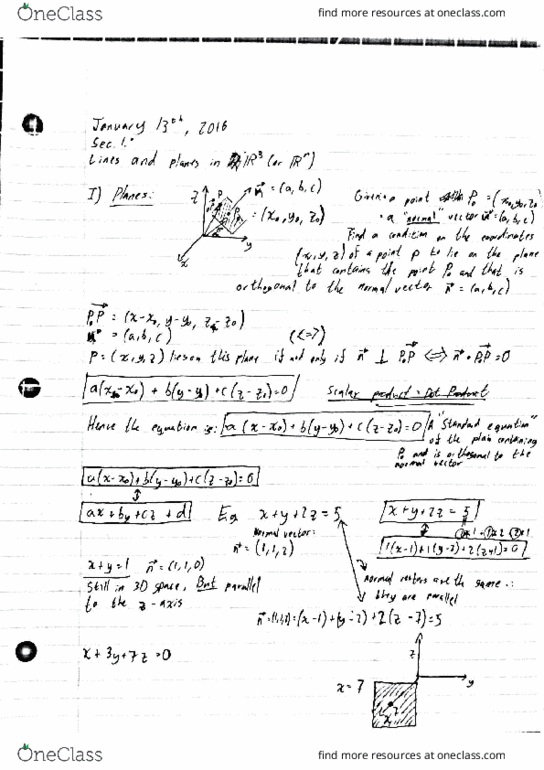 OneClass
find more resources at oneclass.com
January 13th, 2016
Sec. 1.
Lines and planes in ℝ³ (or ℝⁿ)
I) Planes:
z
P
n⃗ = (a, b, c)
P₀
= (x₀, y₀, z₀)
y
x
Given a point P₀ = (x₀, y₀, z₀
a "normal" vector n⃗ = (a, b, c)
Find a condition on the coordinates
(x, y, z) of a point p to lie on the plane
that contains the point P₀ and that is
orthogonal to the normal vector n⃗ = (a, b, c)
P₀P⃗ = (x-x₀, y-y₀, z-z₀)
n⃗ = (a, b, c)
P = (x, y, z) lies on this plane if and only if n⃗ ⊥ P₀P⃗ <=> n⃗ • P₀P⃗ = 0
(<=>)
a(x-x₀) + b(y-y₀) + c(z-z₀) = 0
Scalar product = Dot Product
Hence the equation is: a(x-x₀) + b(y-y₀) + c(z-z₀) = 0 A "Standard equation"
of the plain containing
P₀ and is orthogonal to the
normal vector
a(x-x₀) + b(y-y₀) + c(z-z₀) = 0
ax + by + cz + d
E.g. x + y + 2z = 5
normal vector:
n⃗ = (1, 1, 2)
x + y + 2z = 5
1(x-1) + 1(y-2) + 2(z-1) = 0
x + y = 1 n⃗ = (1, 1, 0)
Still in 3D space, But parallel
to the z-axis
normal vectors are the same ∴
they are parallel
(x-1) + (y-2) + 2(z-7) = 5
x + 3y + 7z = 0
z
x = 7
y
OneClass
find more resources at oneclass.com